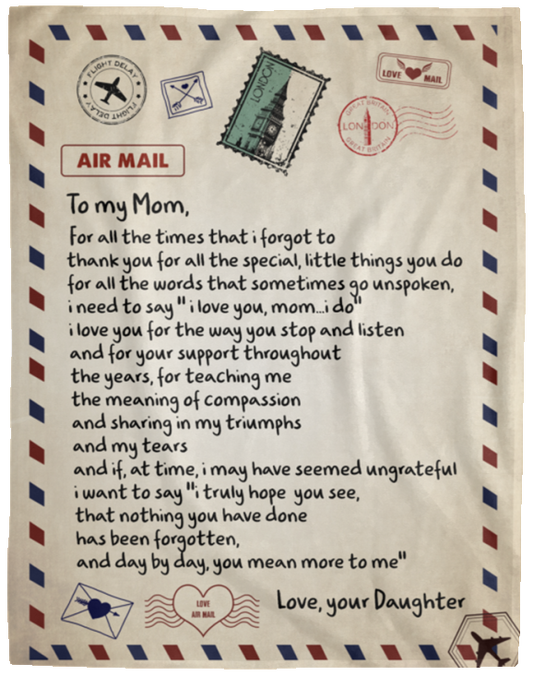 FLIGHT DELAY
FLIGHT DELAY
LONDON
LOVE MAIL
GREAT BRITAIN
LONDON
GREAT BRITAIN
AIR MAIL
To my Mom,
For all the times that i forgot to
thank you for all the special, little things you do
for all the words that sometimes go unspoken,
i need to say "i love you, mom...i do"
i love you for the way you stop and listen
and for your support throughout
the years, for teaching me
the meaning of compassion
and sharing in my triumphs
and my tears
and if, at time, i may have seemed ungrateful
i want to say "i truly hope you see,
that nothing you have done
has been forgotten,
and day by day, you mean more to me"
LOVE
AIR MAIL
Love, your Daughter